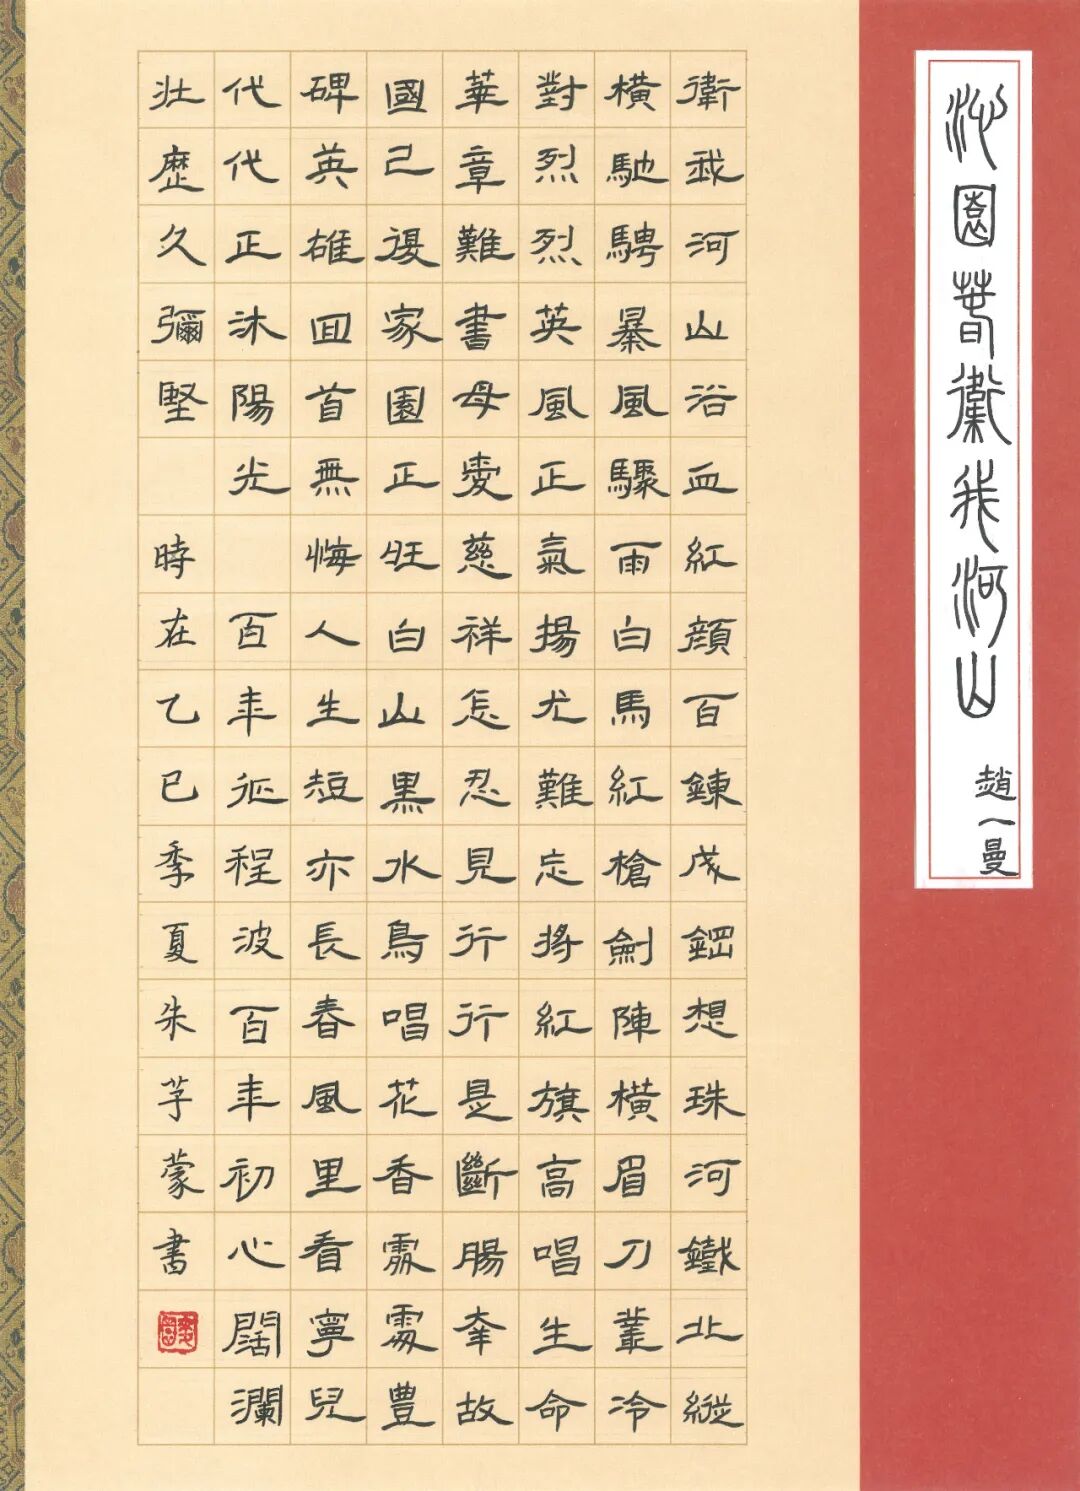 沁園萅衞我河山
趙一曼
衛我河山浴血紅顔百鍊成鋼想珠河鐵北縱
橫馳騁暴風驟雨白馬紅槍劍陣橫眉刀叢冷
對烈烈英風正氣揚尤難忘將紅旗高唱生命
華章難書母愛慈祥怎忍見行行是斷腸奉故
國己復家園正旺白山黑水鳥唱花香處處豊
碑英雄回首無悔人生短亦長春風里看寧兒
代代正沐陽光 百年征程波百年初心闊瀾
壯歷久彌堅 時在乙巳季夏朱芓蒙書